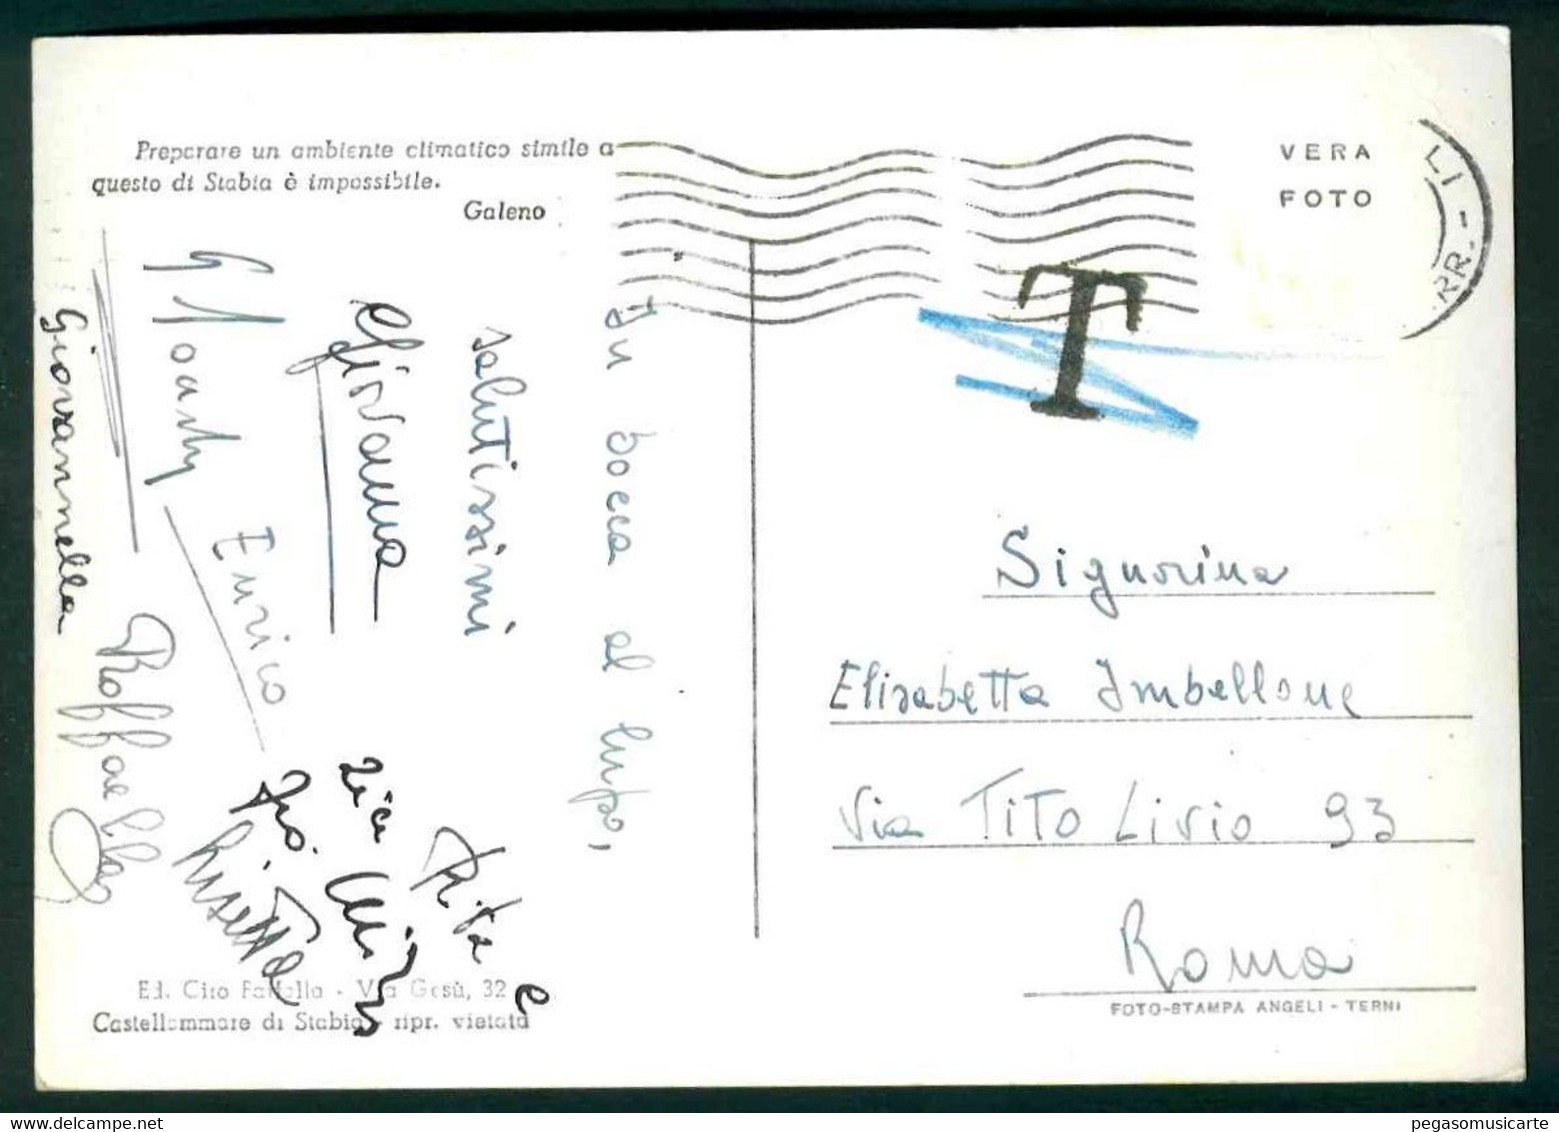 Preparare un ambiente climatico simile a
questo di Stabia è impossibile.
Galeno
VERA
FOTO
LI -
RR.-
T
In bocca al lupo,
salutissimi
Giovanna
Enrico
Giovannella
Raffaella
Lisetta
Rita e
Signorina
Elisabetta Imbellone
Via Tito Livio 93
Roma
Ed. Ciro Fattolla - Via Gesù, 32
Castellammare di Stabia - ripr. vietata
FOTO-STAMPA ANGELI - TERNI
pegasomusicarte